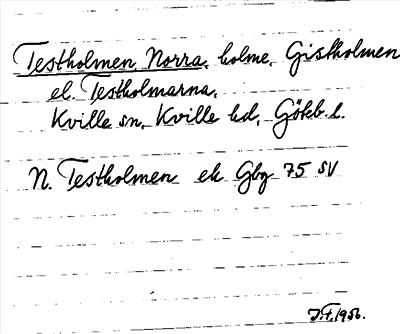 Testholmen, Norra, holme, Gistholmen
el. Testholmarna,
Kville sn, Kville hd, Götkb. l.
N. Testholmen ek Gbg 75 SV
J.t. 1956.